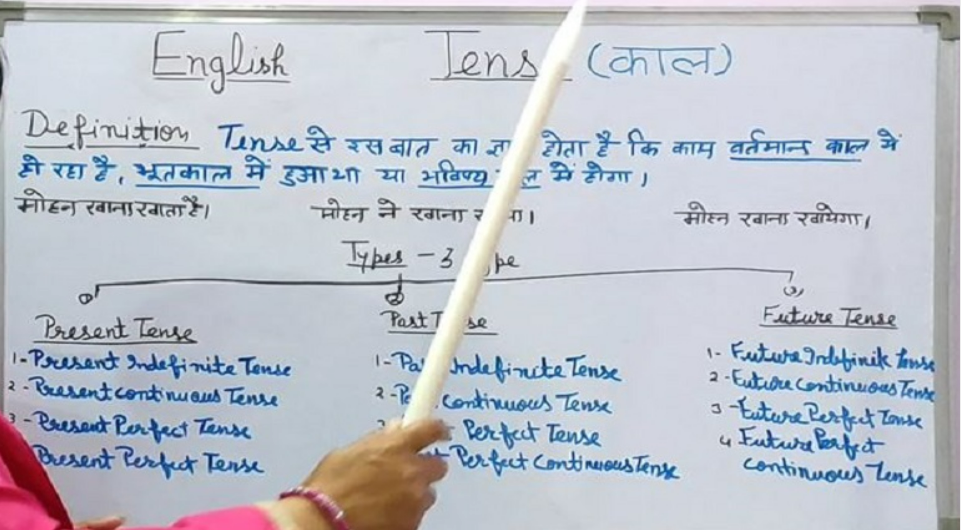 English Tens (काल)
Definition Tense से इस बात का ज्ञा होता है कि काम वर्तमान काल में
हो रहा है, भूतकाल में हुआ था या भविष्य ल में होगा।
मोहन खाना खाता है। मोहन ने खाना या। मोहन खाना खायेगा।
Types - 3 ype
(1) (2) (3)
Present Tense Past T se Future Tense
1- Present Indefinite Tense 1- Pa Indefinite Tense 1- Future Indefinite Tense
2 - Present continuous Tense 2- P continuous Tense 2 - Future continuous Tense
3 - Present Perfect Tense Perfect Tense 3 - Future Perfect Tense
Present Perfect Tense t Perfect Continuous Tense 4 Future Perfect
continuous Tense